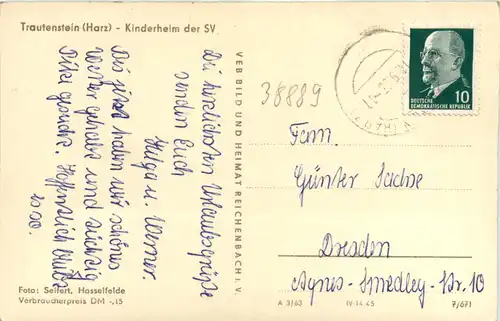 Trautenstein (Harz) - Kinderheim der SV
Die herzlichsten Urlaubsgrüße
senden Euch
Helga u. Werner.
Bis jetzt haben wir schönes
Wetter gehabt und tüchtig
Pilze gesucht. Hoffentlich bleibt
es so.
Foto: Seifert, Hasselfelde
Verbraucherpreis DM -,15
VEB BILD UND HEIMAT REICHENBACH i. V.
38889
DEUTSCHE
DEMOKRATISCHE REPUBLIK
10
Fam.
Günter Sachse
Dresden
Agnes-Smedley-Str. 10
A 3/63
IV-14-45
7/671